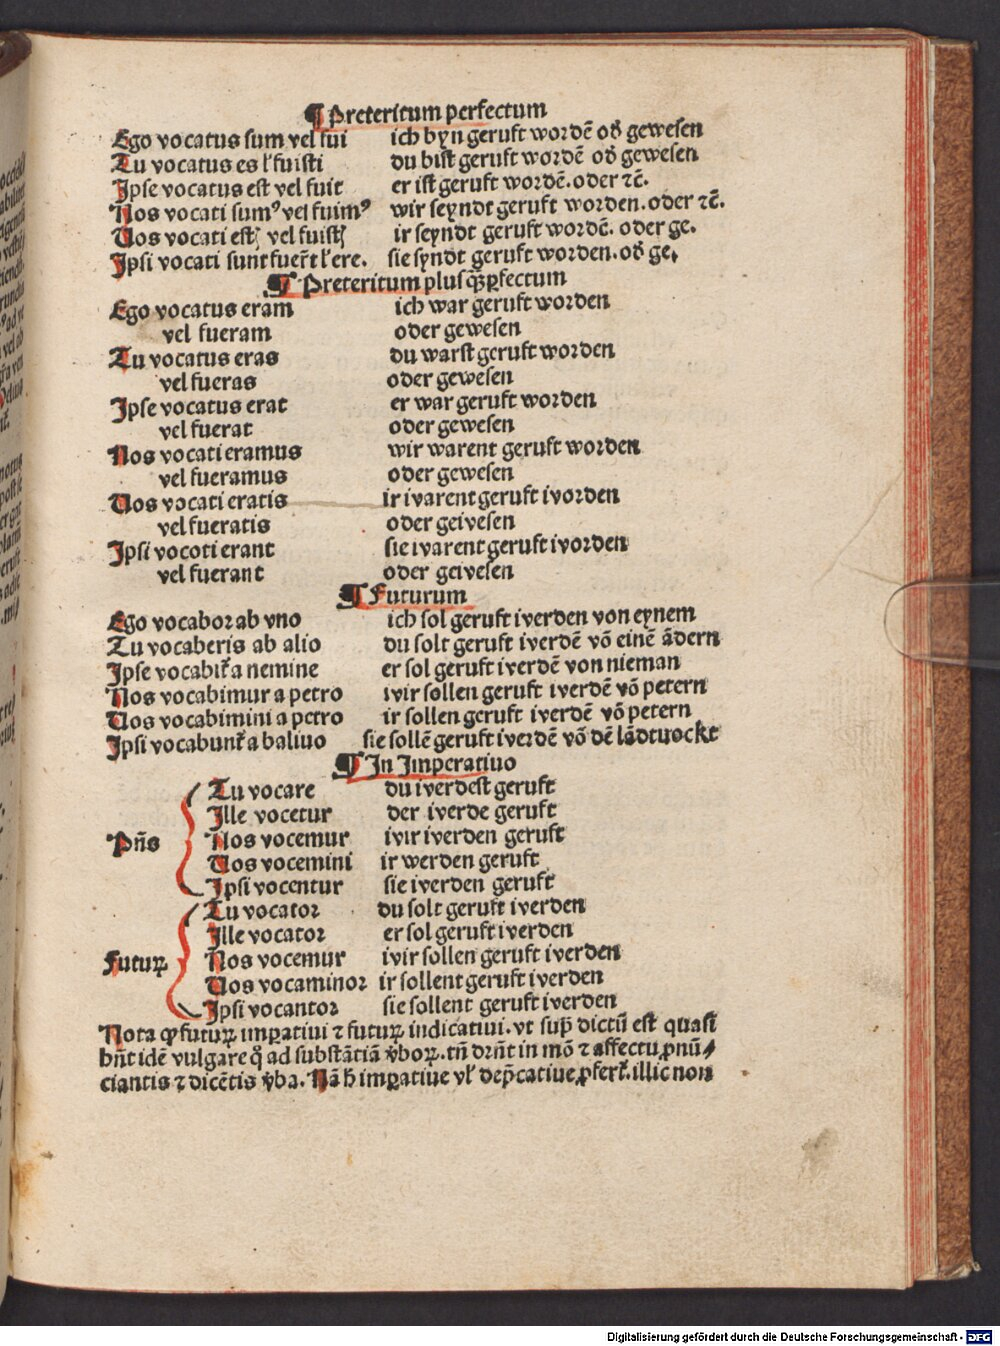 ¶ Preteritum perfectum
Ego vocatus sum vel fui ich byn geruft wordē oď gewesen
Tu vocatus es ľ fuisti du bist geruft wordē oď gewesen
Ipse vocatus est vel fuit er ist geruft wordē. oder ⁊c̄.
Nos vocati sumꝰ vel fuimꝰ wir seyndt geruft worden. oder ⁊c̄.
Uos vocati estꝭ vel fuistꝭ ir seyndt geruft wordē. oder ge.
Ipsi vocati sunt fuer̄t ľ ere. sie syndt geruft worden. oď ge.
¶ Preteritum plusq̄ꝑfectum
Ego vocatus eram ich war geruft worden
vel fueram oder gewesen
Tu vocatus eras du warst geruft worden
vel fueras oder gewesen
Ipse vocatus erat er war geruft worden
vel fuerat oder gewesen
Nos vocati eramus wir warent geruft worden
vel fueramus oder gewesen
Uos vocati eratis ir ivarent geruft ivorden
vel fueratis oder geivesen
Ipsi vocoti erant sie ivarent geruft ivorden
vel fuerant oder geivesen
¶ Futurum
Ego vocabor ab vno ich sol geruft iverden von eynem
Tu vocaberis ab alio du solt geruft iverdē vō einē ādern
Ipse vocabit̄ a nemine er sol geruft iverdē von nieman
Nos vocabimur a petro ivir sollen geruft iverdē vō petern
Uos vocabimini a petro ir sollen geruft iverdē vō petern
Ipsi vocabunt̄ a balivo sie sollē geruft iverdē vō dē lādtvockt
¶ In Imperativo
Tu vocare du iverdest geruft
Ille vocetur der iverde geruft
Pn̄s Nos vocemur ivir iverden geruft
Uos vocemini ir werden geruft
Ipsi vocentur sie iverden geruft
Tu vocator du solt geruft iverden
Ille vocator er sol geruft iverden
Futuꝝ Nos vocemur ivir sollen geruft iverden
Uos vocaminor ir sollent geruft iverden
Ipsi vocantor sie sollent geruft iverden
Nota ꝙ futuꝝ imꝑativi ⁊ futuꝝ indicativi. vt sup̄ dictū est quasi
hn̄t idē vulgare q̊ ad substātiā v̄boꝝ. tn̄ drn̄t in mō ⁊ affectu ꝓnū⸗
ciantis ⁊ dicētis v̄ba. Nā h̄ imꝑative vľ dep̄cative ꝓfert̄. illic non
Digitalisierung gefördert durch die Deutsche Forschungsgemeinschaft - DFG